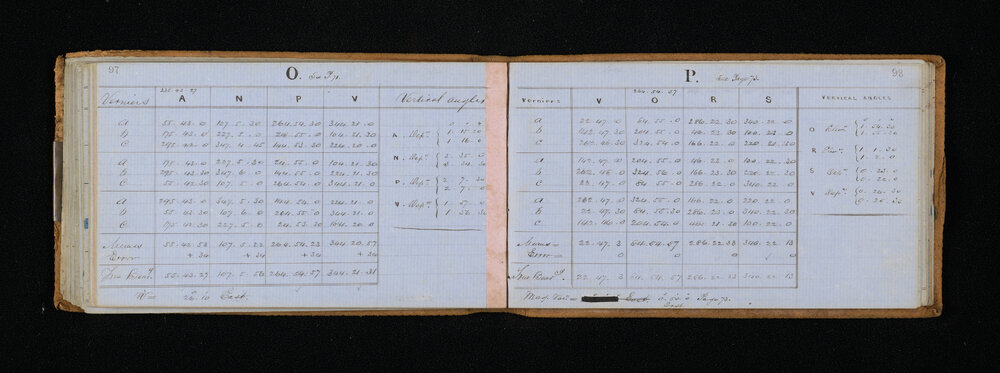 97
O. See P. 71.
235.42.27
Verniers A N P V Vertical angles
a 55.43.0 107.5.30 264.54.30 344.21.0
b 175.43.0 227.5.0 24.55.0 104.21.30
c 295.42.0 347.4.45 144.53.30 224.20.0
a 175.43.0 227.5.30 24.55.0 104.21.30
b 295.43.30 347.6.0 144.55.0 224.21.30
c 55.42.30 107.5.0 264.54.0 344.21.0
a 295.43.0 347.5.30 144.54.0 224.21.0
b 55.43.30 107.6.0 264.55.0 344.21.0
c 175.42.30 227.5.0 24.53.30 104.20.0
Means 55.42.53 107.5.22 264.54.23 344.20.57
Error + 34 + 34 + 34 + 34
True Bear.g 55.43.27 107.5.56 264.54.57 344.21.31
A. Dep.n
1. 16. 0
N. Dep.n 2. 35. 0
O. Dep.n 2. 7. 30
2. 7. 0
V. Dep.n
East.
98
P. See Page 73.
264.54.57
Verniers V O R S VERTICAL ANGLES
a 22.47.0 84.55.0 286.22.30 340.22.0
b 142.47.30 204.55.0 46.22.30 100.22.0
c 262.46.30 324.54.0 166.22.0 220.21.30
a 142.47.0 204.55.0 46.22.0 100.22.30
b 262.48.0 324.56.0 166.23.30 220.22.30
c 22.47.0 84.55.0 286.22.0 340.22.0
a 262.47.0 324.55.0 166.22.0 220.22.0
b 22.47.30 84.55.30 286.23.0 340.22.30
c 142.46.0 204.54.0 46.21.30 100.22.0
Means 22.47.3 84.54.57 286.22.33 340.22.13
Error 0 0 0 0
True Bear.g 22.47.3 84.54.57 286.22.33 340.22.13
O
R 1. 1. 30
1. 2. 0
S Dep.n 0. 23. 0
0. 22. 0
V Dep.n 0. 26. 30
0. 26. 30
Mag. Var. = East Page 73.
East